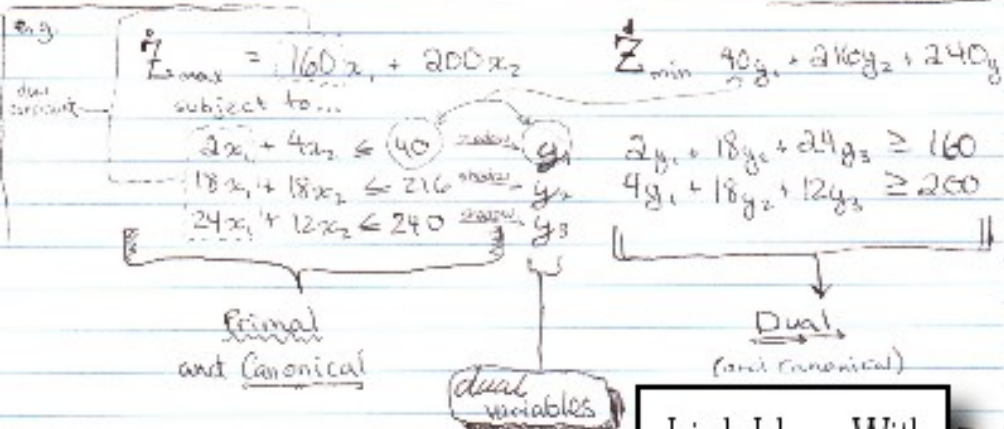 e.g.
Z max = 160x₁ + 200x₂
subject to...
2x₁ + 4x₂ ≤ 40 shadow y₁
18x₁ + 18x₂ ≤ 216 shadow y₂
24x₁ + 12x₂ ≤ 240 shadow y₃
Primal
and Canonical
dual variables
Z min 40y₁ + 216y₂ + 240y
2y₁ + 18y₂ + 24y₃ ≥ 160
4y₁ + 18y₂ + 12y₃ ≥ 200
Dual
(and Canonical)
Link Ideas With